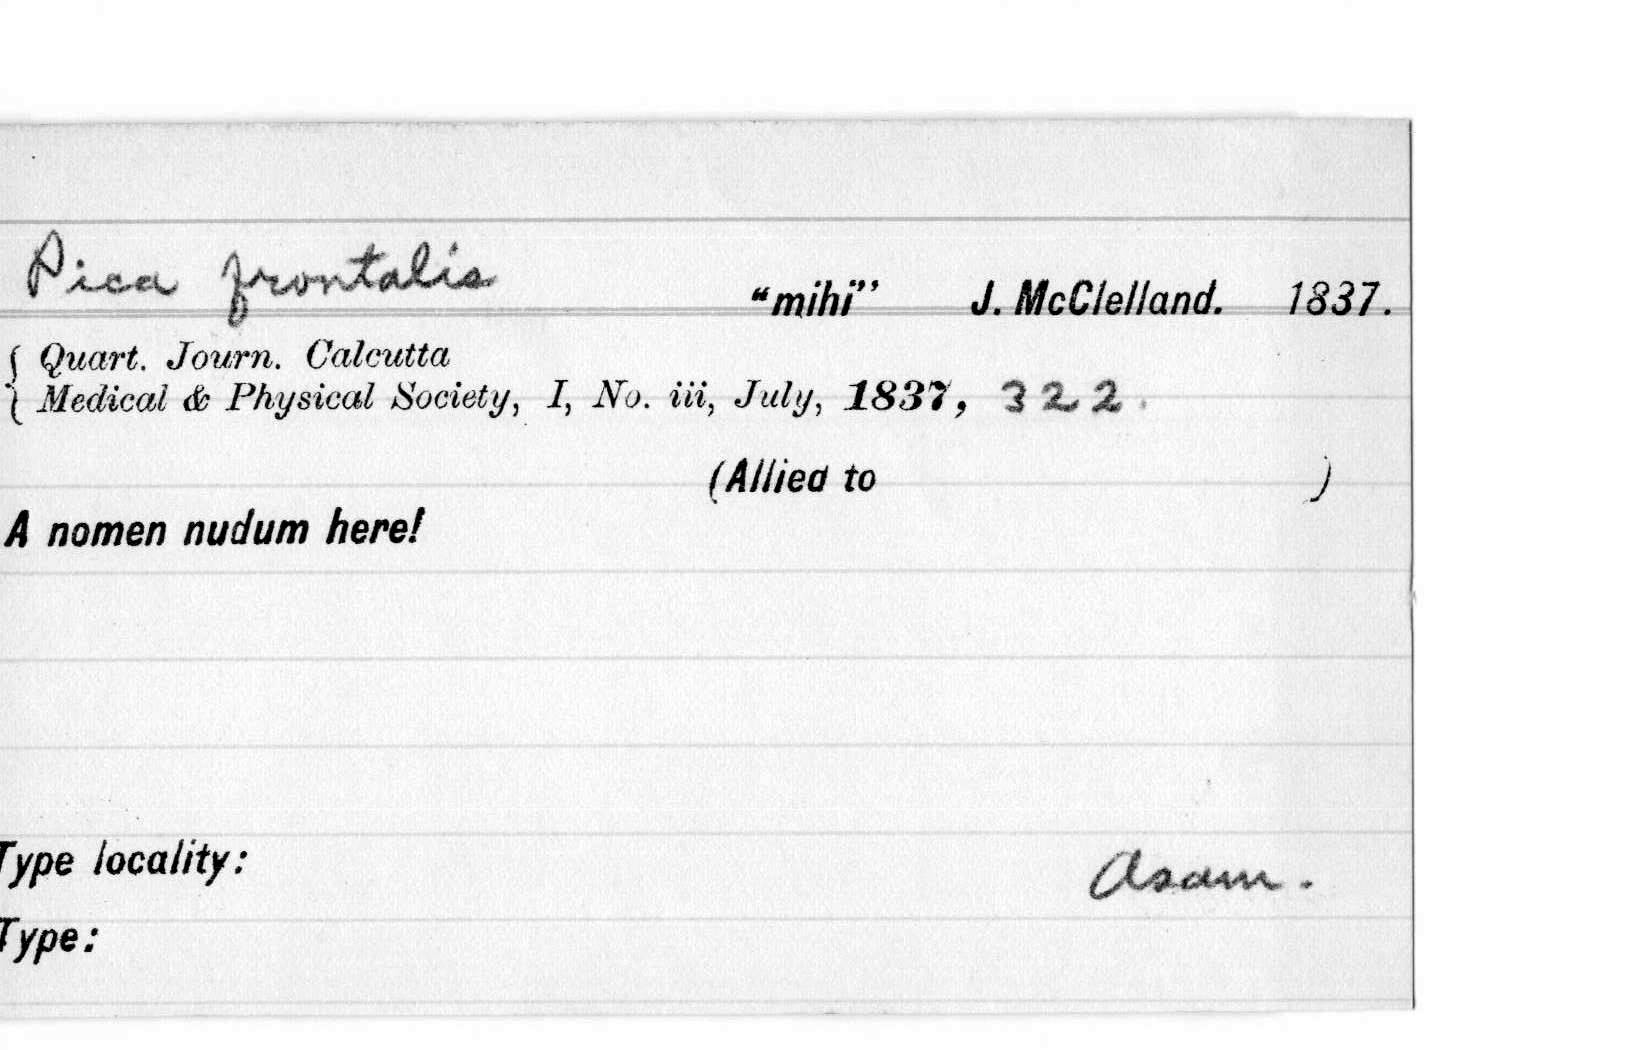 Pica frontalis "mihi" J. McClelland. 1837.
Quart. Journ. Calcutta
Medical & Physical Society, I, No. iii, July, 1837, 322.
(Allied to )
A nomen nudum here!
Type locality: Asam.
Type: